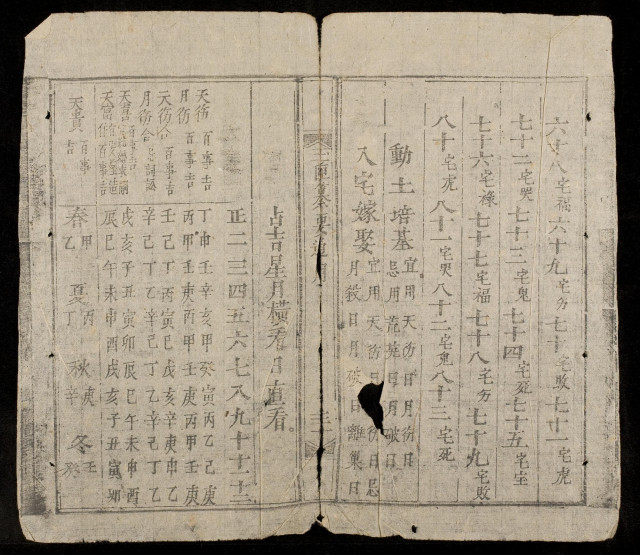 六十八宅福六十九宅夯七十宅敗七十一宅虎
七十二宅哭七十三宅鬼七十四宅死七十五宅宝
七十六宅祿七十七宅福七十八宅夯七十九宅敗
八十宅虎八十一宅哭八十二宅鬼八十三宅死
動土培基
宜用天㣔日月㣔日
忌用荒蕪日月破日
入宅嫁娶
宜用天㣔日月㣔日忌
月殺日月破日離巢日
占吉星月横看日直看。
正二三四五六七八九十十一十二
天㣔百事吉 丁申壬辛亥甲癸寅丙乙己庚
月㣔百事吉 丙甲壬庚丙甲壬庚丙甲壬庚
天㣔合百事吉 壬己丁丙寅己戊亥辛庚申乙
月㣔合忌詞訟 辛己丁乙辛己丁乙辛己丁乙
天喜 戌亥子丑寅卯辰巳午未申酉
天富 辰巳午未申酉戌亥子丑寅卯
天貴百事吉 春甲乙 夏丙丁 秋庚辛 冬壬癸